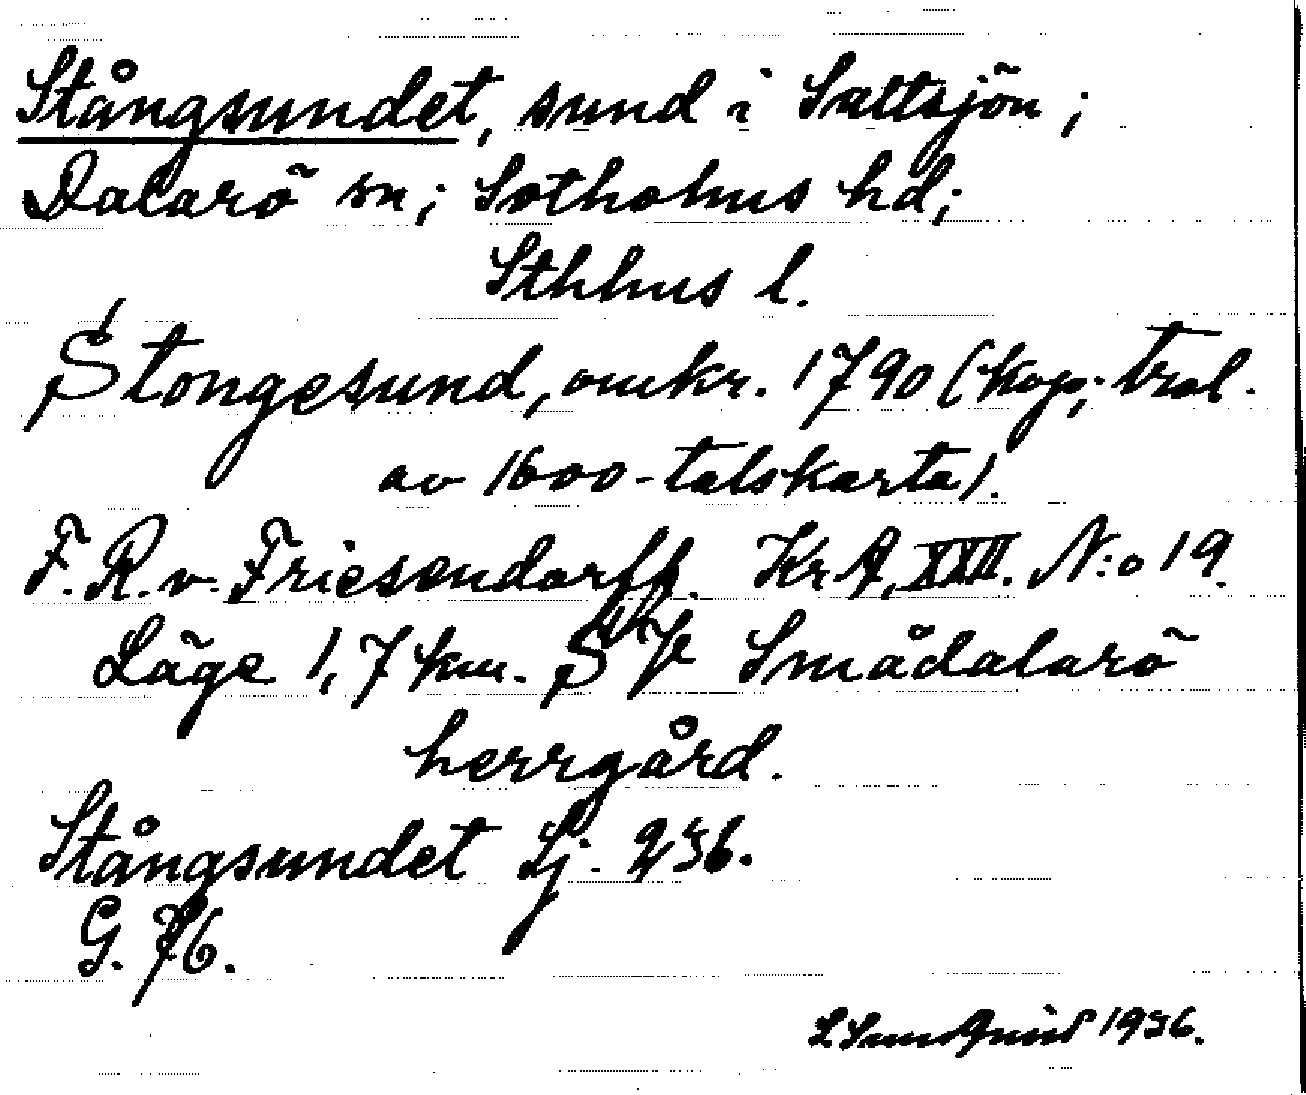 Stångsundet, sund i Saltsjön;
Dalarö sn; Sotholms hd;
Sthlms l.
Stongesund, omkr. 1790 (kop; trol.
av 1600-talskarta).
F. R. v. Friesendorff. Kr A, XXII. N:o 19.
Läge 1,7 km. SV Smådalarö
herrgård.
Stångsundet Sj. 236.
G. 76.
L Sundqvist 1936.